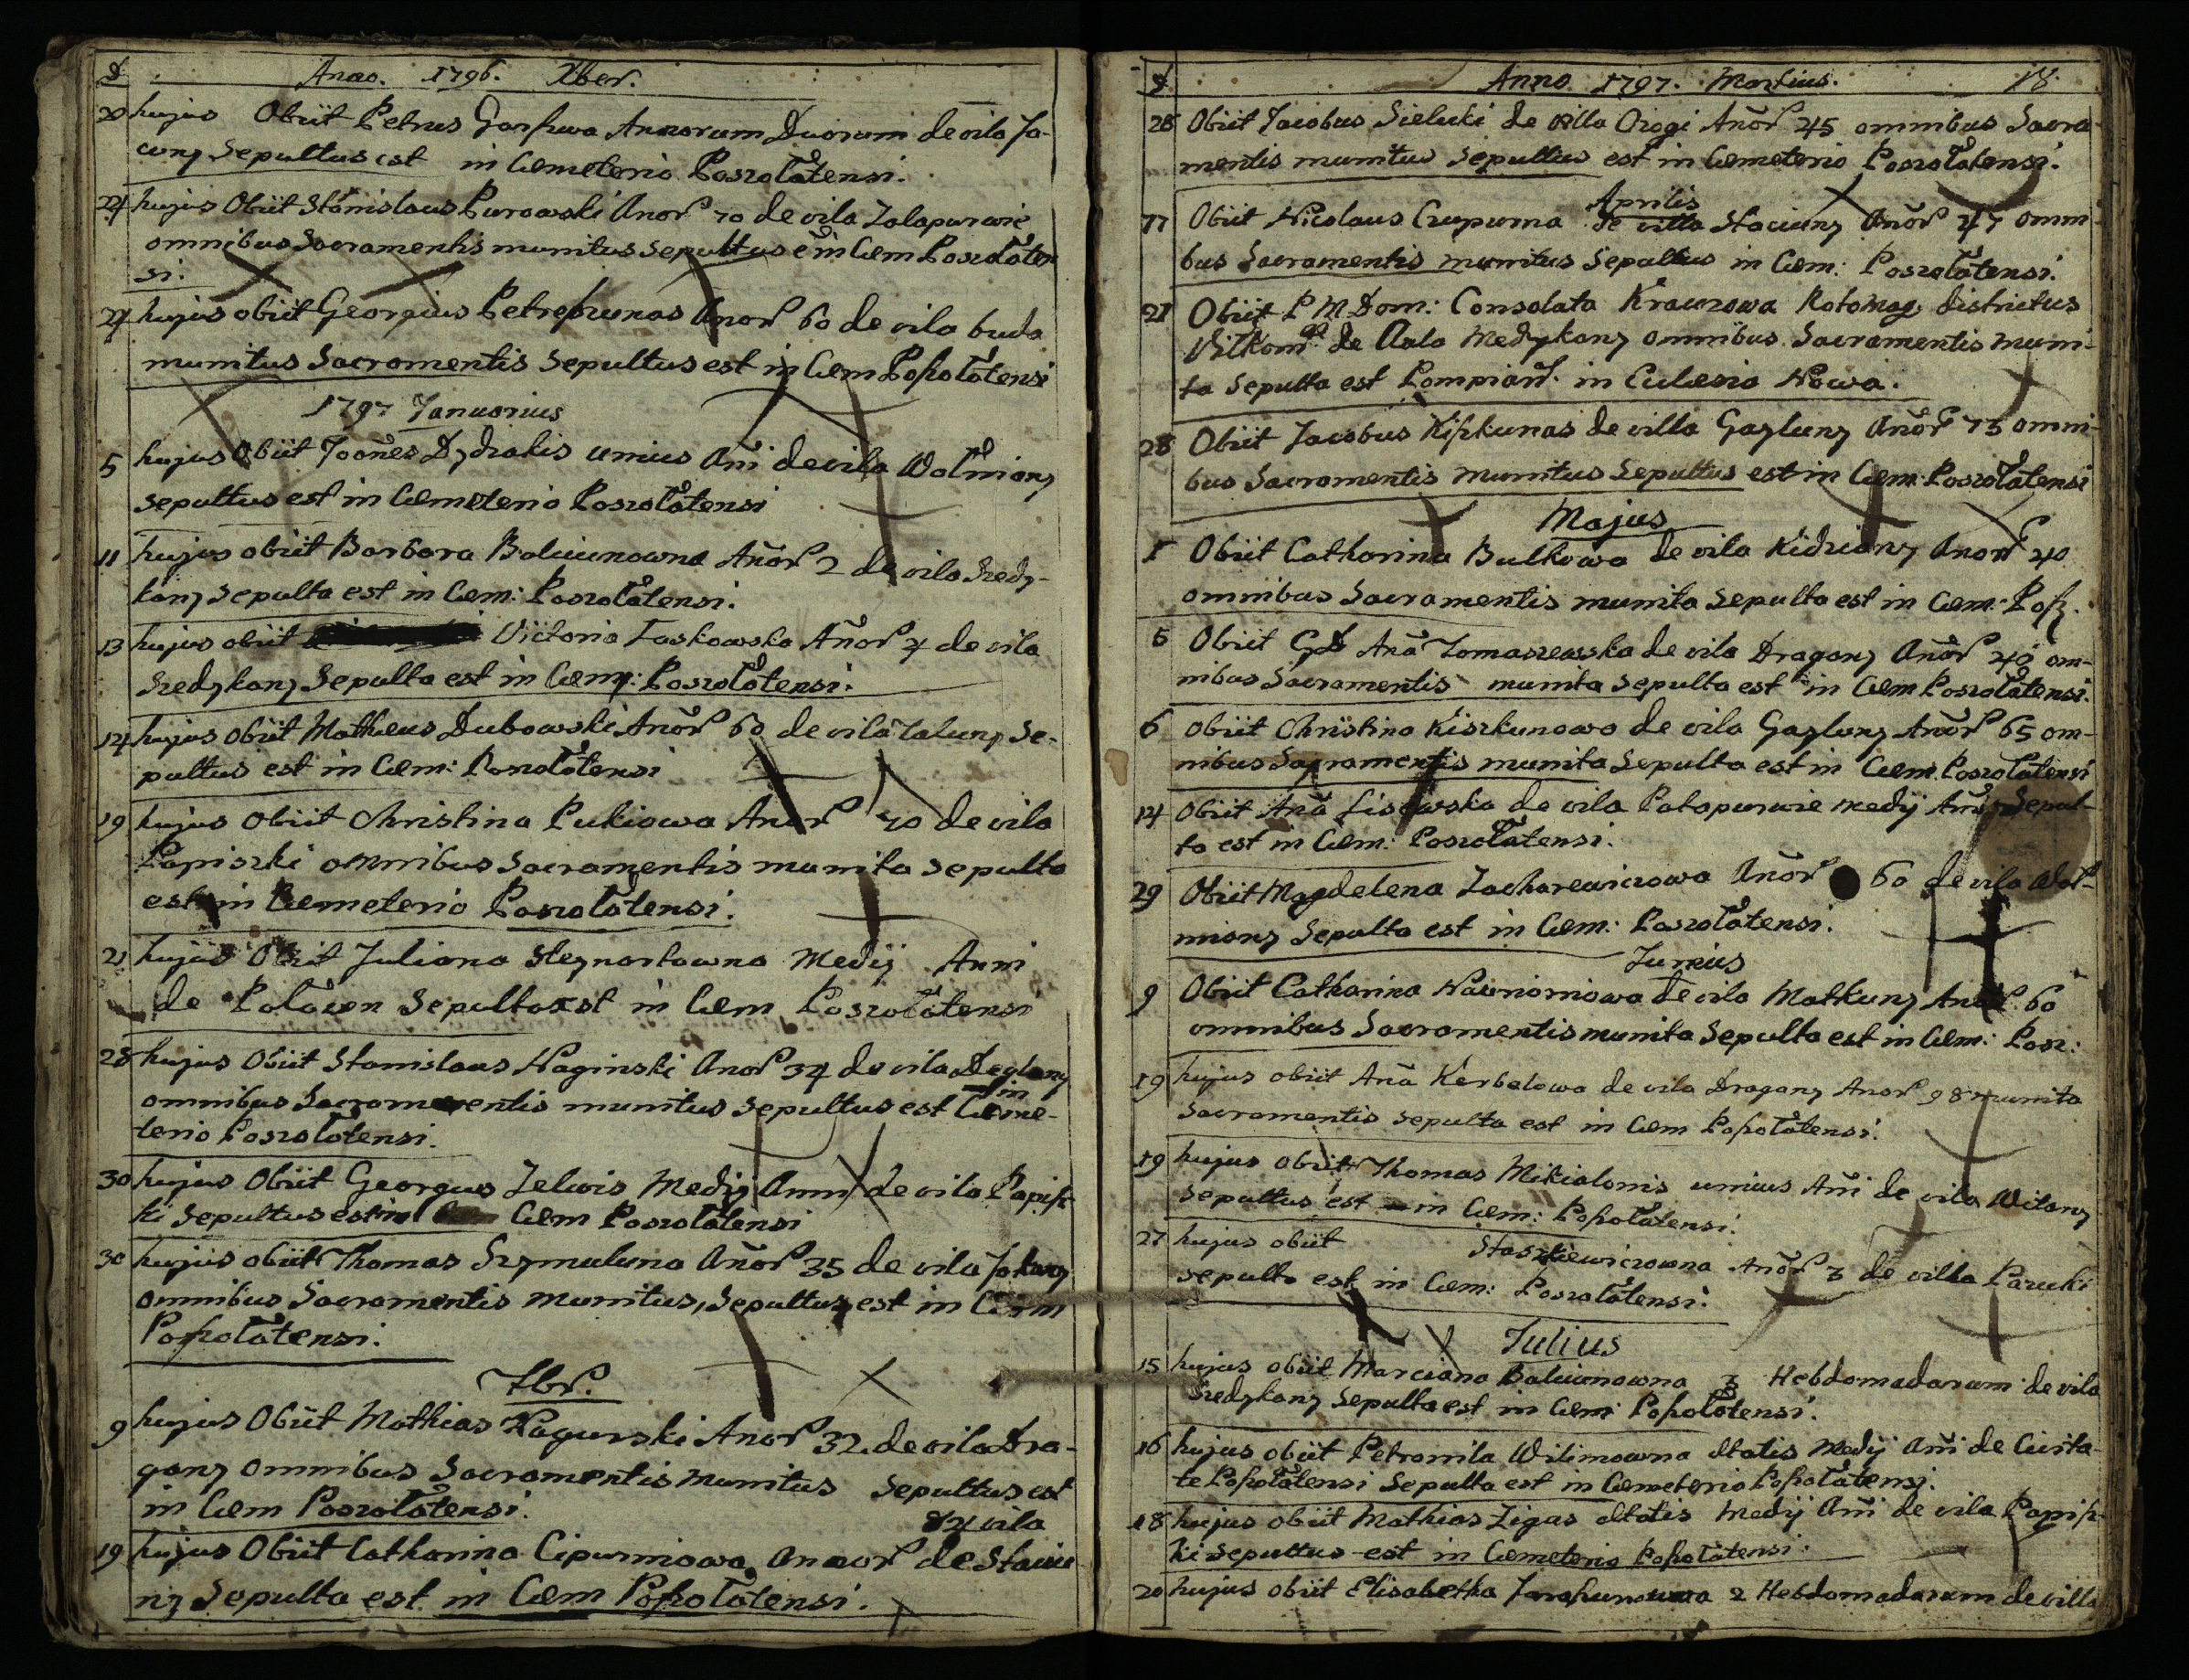 D Anno. 1796. Xber.
20 hujus Obiit Petrus Garszwa Annorum Duorum de vila Ja-
cuny Sepultus est in Cemeterio Poszołatensi.
24 hujus Obiit Stanislaus Purowski Anor 70 de vila Zalapurwie
omnibus Sacramentis munitus sepultus e in Cem Poszołaten
si.
24 hujus obiit Georgius Petrehunas Anor 60 de vila buda
munitus Sacramentis Sepultus est in Cem Poszołatensi
1797 Januarius
5 hujus Obiit Joanes Dydzialis unius Ani de vila Wołniany
sepultus est in Cemeterio Poszołatensi
11 hujus obiit Barbara Balciunowna Anor 2 de vila Szedy-
kany Sepulta est in Cem: Poszołatensi.
13 hujus obiit Victoria Laskowska Anor 4 de vila
Szedykany Sepulta est in Cem: Poszołatensi.
14 hujus obiit Matheus Dubowski Anor 60 de vila Zaluny Se-
pultus est in Cem: Poszołatensi
19 hujus Obiit Christina Pukiowa Anor 70 de vila
Papiszki omnibus Sacramentis munita sepulta
est in Cemeterio Poszołatensi.
21 hujus Obiit Juliana Steynartowna Medij Anni
de Poławen Sepulta est in Cem Poszołatensi
28 hujus Obiit Stanislaus Naginski Anor 34 de vila Deglany
omnibus Sacramentis munitus Sepultus est in Ceme-
terio Poszołatensi.
30 hujus Obiit Georgus Zelwis Medij Anni de vila Papisz-
ki Sepultus est in Cem Poszołatensi
30 hujus obiit Thomas Szymuluna Anor 35 de vila Jokany
omnibus Sacramentis munitus, Sepultus est in Cem
Poszołatensi.
9 hujus Obiit Mathias Ragurski Anor 32 de vila Dra-
gany omnibus Sacramentis munitus Sepultus est
in Cem Poszołatensi.
84 vila
19 hujus Obiit Catharina Cipurniowa Annor de Staciu
ny Sepulta est in Cem Poszołatensi.
D Anno 1797. Martius. 18
28 Obiit Jacobus Sielucki de villa Oirogi Anor 45 omnibus Sacra-
mentis munitus Sepultus est in Cemeterio Poszołatensi.
Aprilis
17 Obiit Nicolaus Czupurna de villa Staciuny Anor 47 omni
bus Sacramentis munitus Sepultus in Cem: Poszołatensi.
21 Obiit P M Dom: Consolata Krauzowa Rotomag. districtus
Vilkom de Aula Medykany omnibus Sacramentis muni-
ta Sepulta est Pompian. in Eclesia Nowa.
28 Obiit Jacobus Kiszkunas de villa Gayluny Anor 75 omni-
bus Sacramentis munitus Sepultus est in Cem: Poszołatensi
Majus
1 Obiit Catharina Bulkowa de vila Kidziany Anor 40
omnibus Sacramentis munita Sepulta est in Cem: Posz.
5 Obiit GD Ana Tomaszewska de vila Dragany Anor 40 om-
nibus Sacramentis munita sepulta est in Cem Poszołatensi.
6 Obiit Christina Kiszkunowa de vila Gayluny Anor 65 om-
nibus Sacramentis munita Sepulta est in Cem. Poszołatensi
14 Obiit Ana Lisowska de vila Patopurwie medij Ani Sepul-
ta est in Cem: Poszołatensi.
29 Obiit Magdelena Zacharewiczowa Anor 60 de vila Woł-
niany Sepulta est in Cem: Poszołatensi.
Junius
9 Obiit Catharina Nawniorniowa de vila Matkuny Anor. 60
omnibus Sacramentis munita Sepulta est in Cem: Posz:
19 hujus obiit Ana Kerbelowa de vila Dragany Anor 98 munita
Sacramentis sepulta est in Cem Poszołatensi.
19 hujus obiit Thomas Mikialonis unius Ani de vila Witany
sepultus est in Cem: Poszołatensi.
27 hujus obiit Staszkiewiczowna Anor 3 de villa Paruki
sepulta est in Cem: Poszołatensi.
Julius
15 hujus obiit Marciana Balciunowna 3 Hebdomadarum de vila
Szedykany Sepulta est in Cem: Poszołatensi.
16 hujus obiit Petronila Wilimowna etatis Medij Ani de Civita-
te Poszołatensi Sepulta est in Cemeterio Poszołatensi.
18 hujus obiit Mathias Zigas etatis Medij Ani de vila Papisz-
ki sepultus est in Cemeterio Poszołatensi.
20 hujus obiit Elisabetha 2 Hebdomadarum de villa